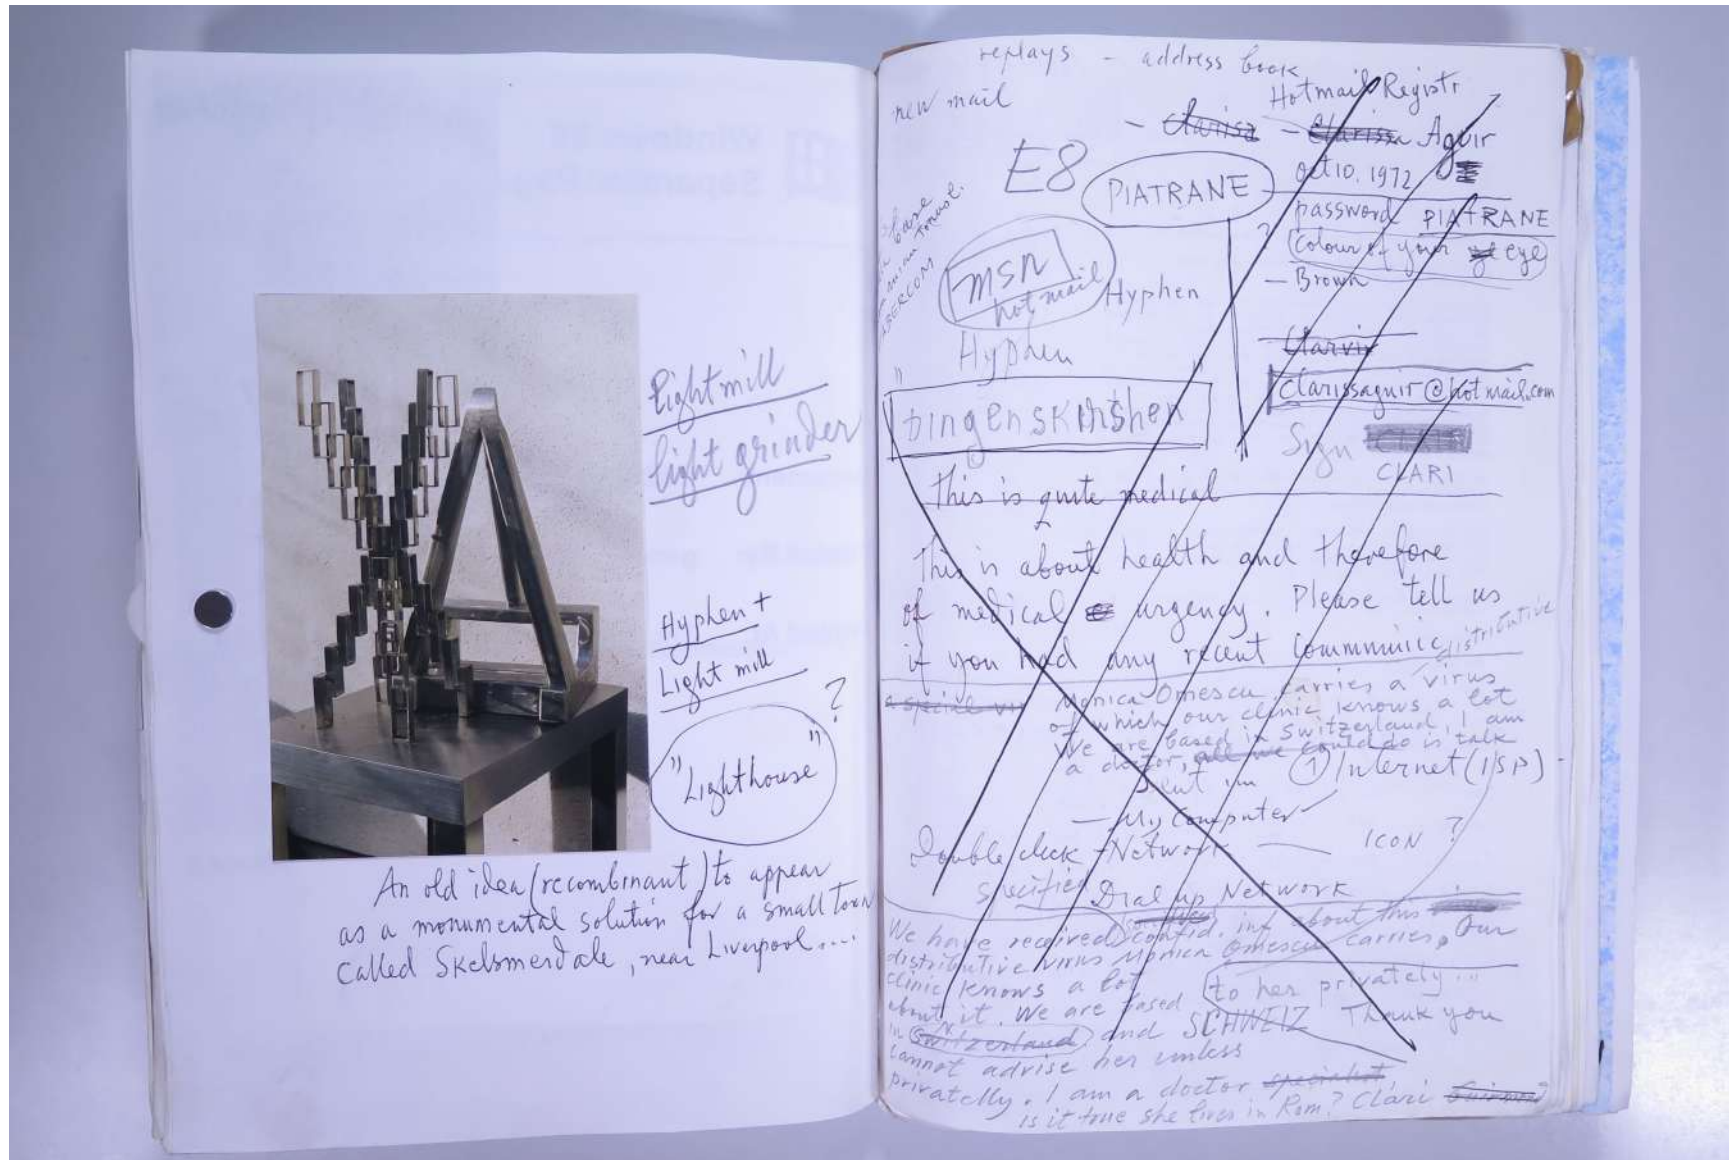 Light mill
light grinder
Hyphen +
Light mill
?
"Lighthouse"
An old idea (recombinant) to appear
as a monumental solution for a small town
called Skelsmerdale, near Liverpool....
replays - address book
new mail
Hotmail Registr
- Clarisa - Clarissa Aguir
oct 10. 1972
E8
PIATRANE
password PIATRANE
? Colour of your eye
- Brown
base
msn
hotmail
Hyphen
Hyphen
Clarvir
clarissaguir@hotmail.com
"bingenskirshen"
Sign
CLARI
This is quite medical
This is about health and therefore
of medical urgency. Please tell us
if you had any recent communic
distributive
a special vir Monica Omescu carries a virus
of which our clinic knows a lot
We are based in Switzerland, I am
a doctor, all we could do is talk
1 Internet (ISP)
- My Computer
Double click - Network — ICON ?
specified Dial up Network
We have received confid. inf about this
distributive virus Monica Omescu carries. Our
clinic knows a lot
about it. We are based to her privately...
in Switzerland and SCHWEIZ Thank you
cannot advise her unless
privatelly. I am a doctor specialist
is it true she lives in Rom? Clari